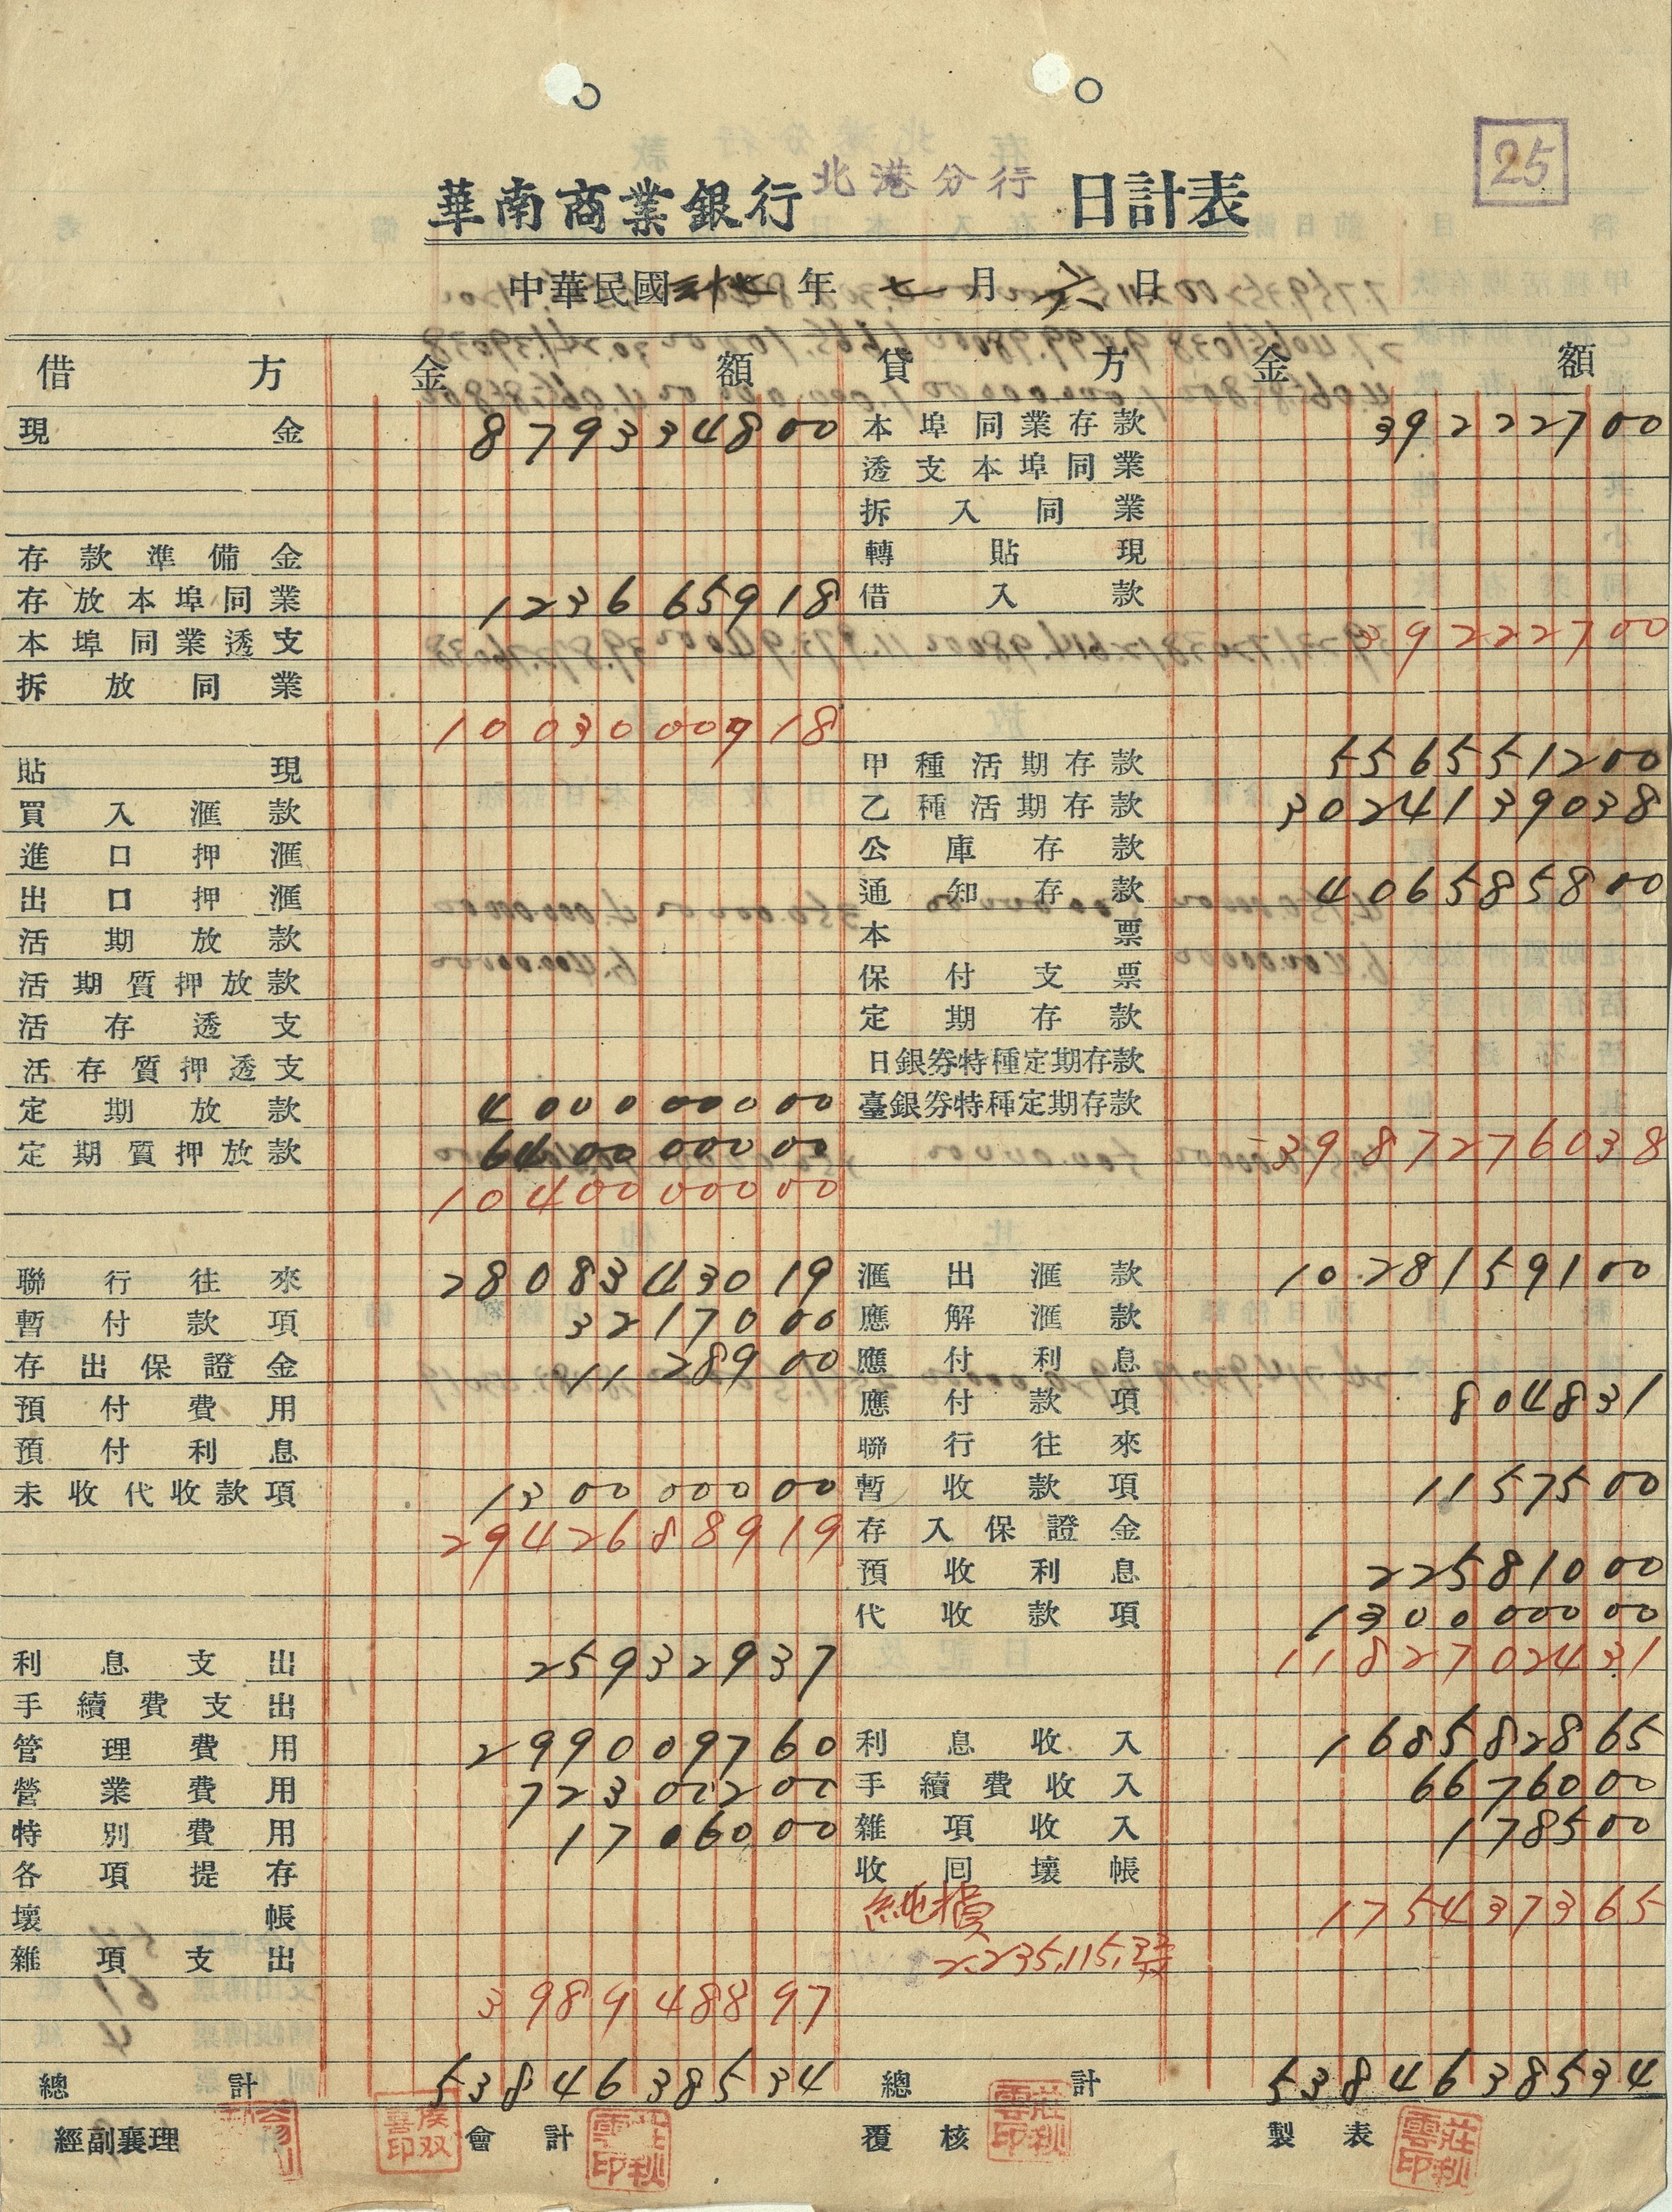 25
華南商業銀行 北港分行 日計表
中華民國三十七年七月六日
借方 金額 貸方 金額
現金 879334800 本埠同業存款 39222700
透支本埠同業
拆入同業
存款準備金 轉貼現
存放本埠同業 123665918 借入款
本埠同業透支 39222700
拆放同業
1003000718
貼現 甲種活期存款 556551200
買入滙款 乙種活期存款 3024139038
進口押滙 公庫存款
出口押滙 通知存款 406585800
活期放款 本票
活期質押放款 保付支票
活存透支 定期存款
活存質押透支 日銀券特種定期存款
定期放款 400000000 臺銀券特種定期存款
定期質押放款 640000000 3987276038
1040000000
聯行往來 2808343019 滙出滙款 1028159100
暫付款項 3217000 應解滙款
存出保證金 1128900 應付利息
預付費用 應付款項 804831
預付利息 聯行往來
未收代收款項 130000000 暫收款項 1157500
2942688919 存入保證金
預收利息 22581000
代收款項 130000000
利息支出 25932937 1182702431
手續費支出
管理費用 299009760 利息收入 168582865
營業費用 72300200 手續費收入 6676000
特別費用 1706000 雜項收入 178500
各項提存 收回壞帳
壞帳 純損 175437365
雜項支出 2,235,115.32
398948897
總計 5384638534 總計 5384638534
經副襄理 會計 覆核 製表
莊秋雲印 莊秋雲印 莊秋雲印